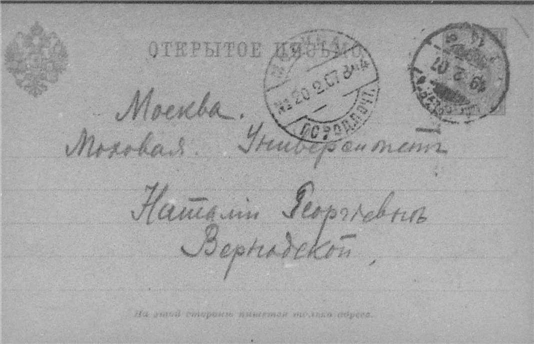 ОТКРЫТОЕ ПИСЬМО
МОСКВА
№ 20.2.07
ГОРОД.ПОЧ.
19 2 07
Москва.
Моховая. Университетъ
Наталiи Георгiевнѣ
Вернадской.
На этой сторонѣ пишется только адресъ.